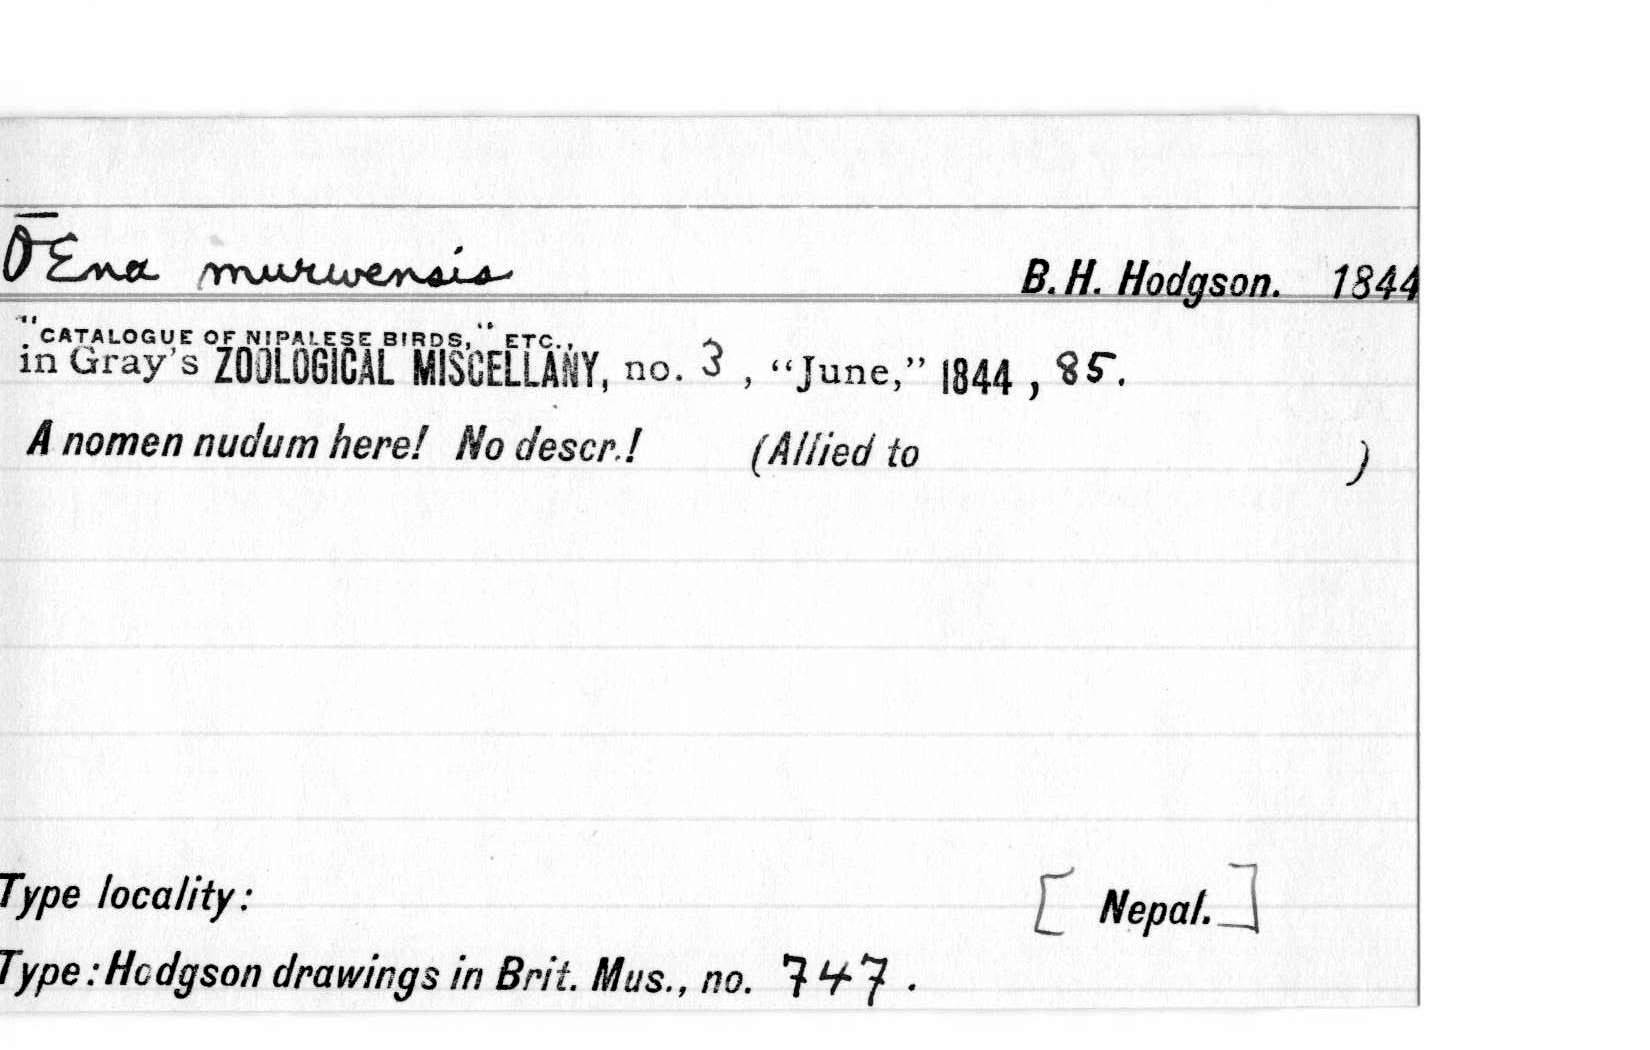 OEna murwensis B. H. Hodgson. 1844
"CATALOGUE OF NIPALESE BIRDS," ETC.,
in Gray's ZOOLOGICAL MISCELLANY, no. 3, "June," 1844, 85.
A nomen nudum here! No descr.! (Allied to )
Type locality: [Nepal.]
Type: Hodgson drawings in Brit. Mus., no. 747.